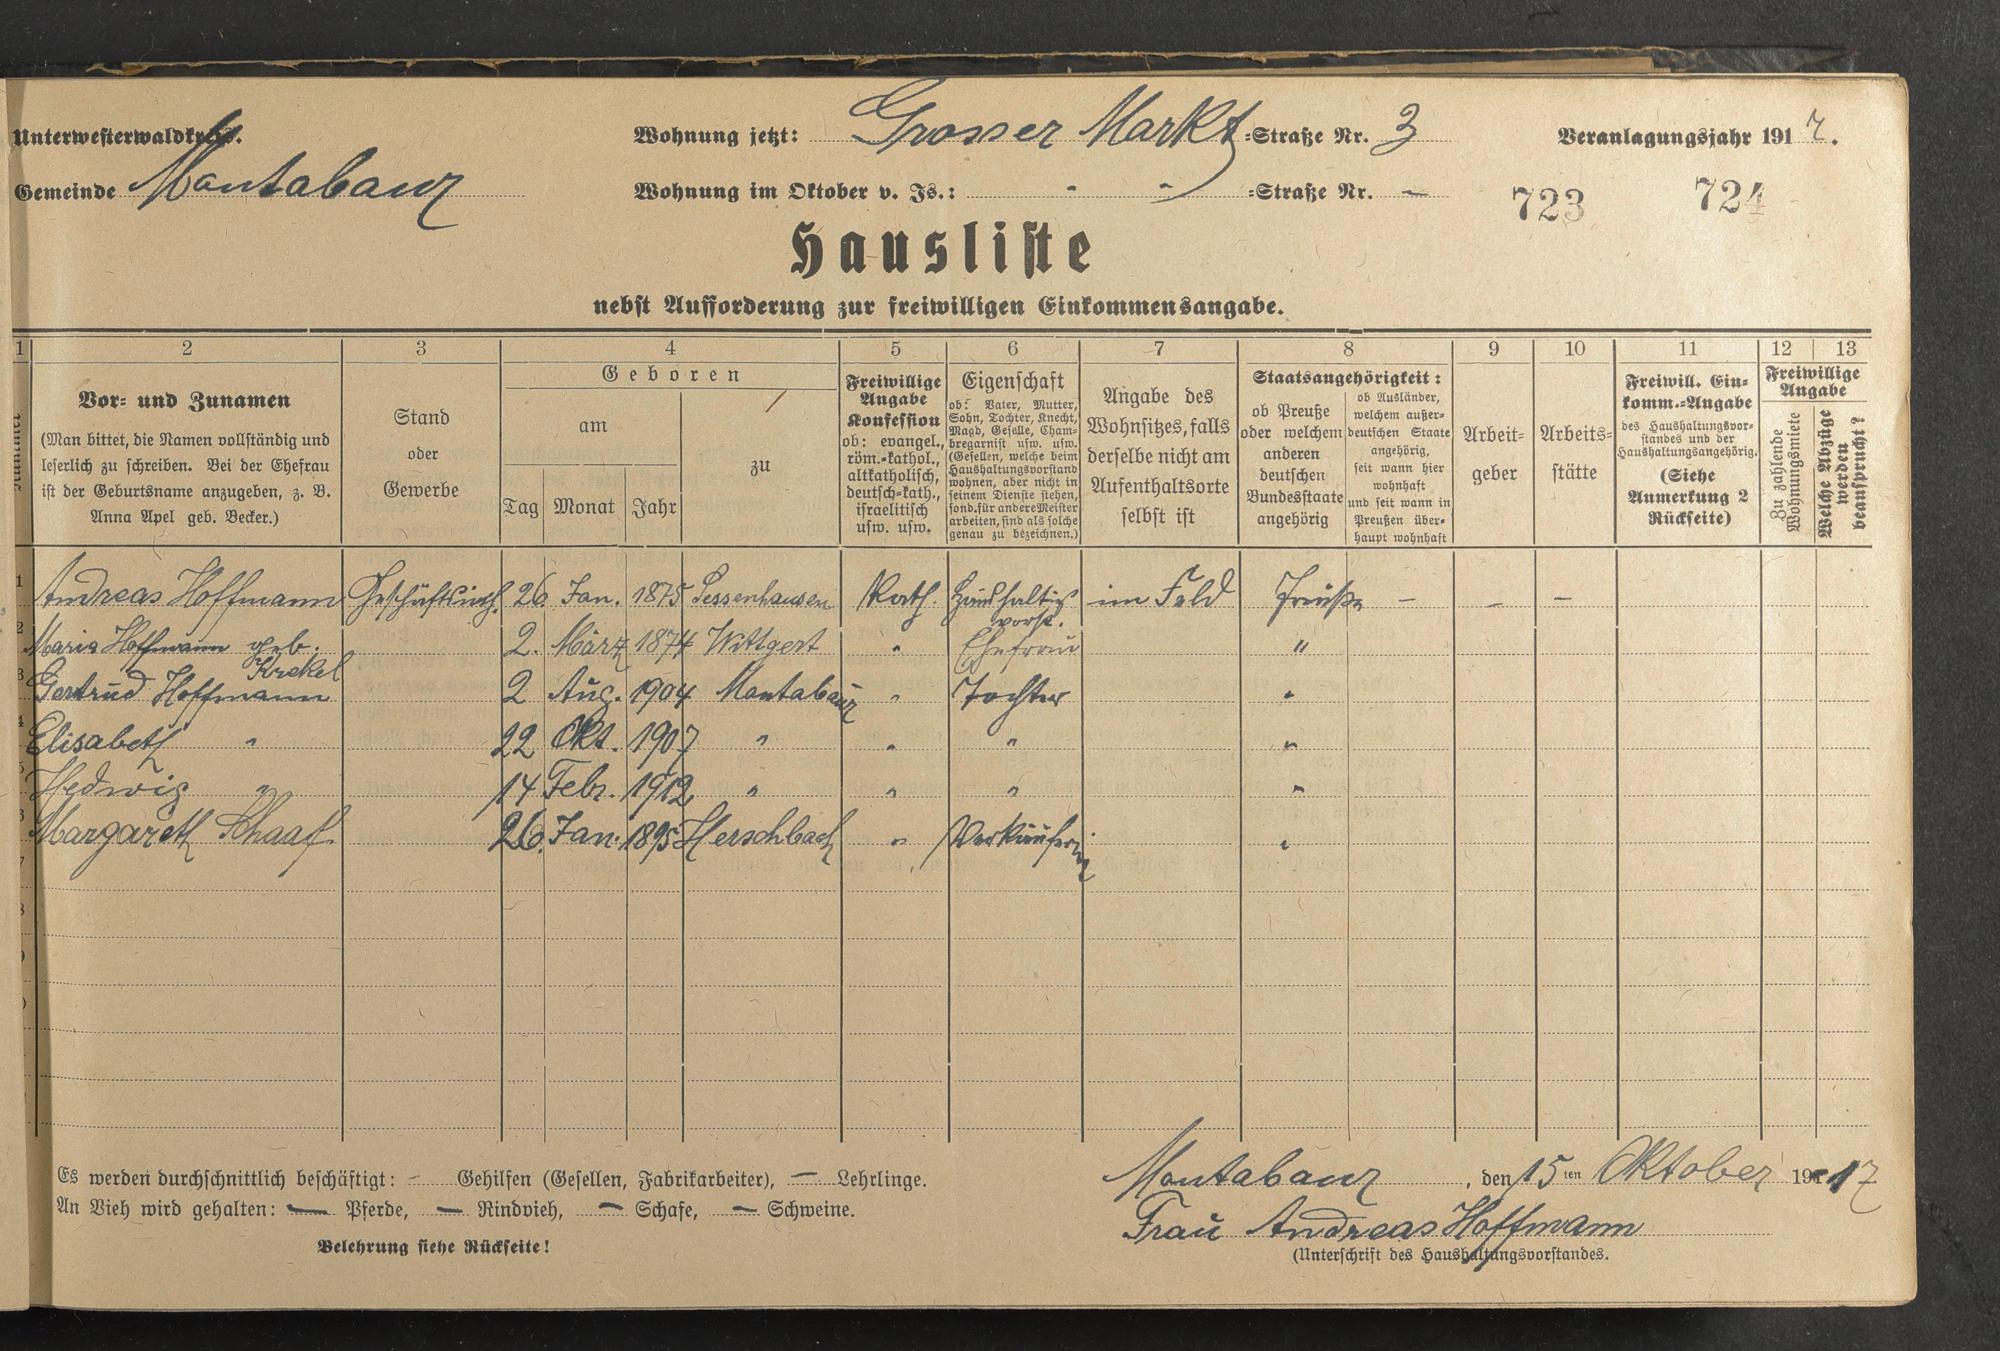 Unterwesterwaldkreis.
Wohnung jetzt: Grosser Markt =Straße Nr. 3
Veranlagungsjahr 1917.
Gemeinde Montabaur
Wohnung im Oktober v. Js.: " " =Straße Nr. –
723 724
Hausliste
nebst Aufforderung zur freiwilligen Einkommensangabe.
1 2 3 4 5 6 7 8 9 10 11 12 13
Nummer
Vor- und Zunamen
(Man bittet, die Namen vollständig und
leserlich zu schreiben. Bei der Ehefrau
ist der Geburtsname anzugeben, z. B.
Anna Apel geb. Becker.)
Stand
oder
Gewerbe
Geboren
am
Tag Monat Jahr
zu
Freiwillige
Angabe
Konfession
ob: evangel.,
röm.-kathol.,
altkatholisch,
deutsch-kath.,
israelitisch
usw. usw.
Eigenschaft
ob: Vater, Mutter,
Sohn, Tochter, Knecht,
Magd, Geselle, Cham-
bregarnist usw. usw.
(Gesellen, welche beim
Haushaltungsvorstand
wohnen, aber nicht in
seinem Dienste stehen,
sond. für andere Meister
arbeiten, sind als solche
genau zu bezeichnen.)
Angabe des
Wohnsitzes, falls
derselbe nicht am
Aufenthaltsorte
selbst ist
Staatsangehörigkeit:
ob Preuße
oder welchem
anderen
deutschen
Bundesstaate
angehörig
ob Ausländer,
welchem außer-
deutschen Staate
angehörig,
seit wann hier
wohnhaft
und seit wann in
Preußen über-
haupt wohnhaft
Arbeit-
geber
Arbeits-
stätte
Freiwill. Ein-
komm.-Angabe
des Haushaltungsvor-
standes und der
Haushaltungsangehörig.
(Siehe
Anmerkung 2
Rückseite)
Freiwillige
Angabe
Zu zahlende
Wohnungsmiete
Welche Abzüge
werden
beansprucht?
1 Andreas Hoffmann 26. Jan. 1875 Sessenhausen Kath. Haushaltgs vorst. im Feld Preuße – – –
2 Maria Hoffmann geb. Krekel 2. März 1874 Wittgert " Ehefrau "
3 Gertrud Hoffmann 2 Aug. 1904 Montabaur " Tochter "
4 Elisabeth " 22 Okt. 1907 " " " "
5 Hedwig " 14 Febr. 1912 " " " "
6 Margareth Schaaf 26. Jan. 1895 Herschbach " Verkäuferin "
7
8
9
0
Es werden durchschnittlich beschäftigt: – Gehilfen (Gesellen, Fabrikarbeiter), – Lehrlinge.
An Vieh wird gehalten: – Pferde, – Rindvieh, – Schafe, – Schweine.
Belehrung siehe Rückseite!
Montabaur, den 15ten Oktober 1917
Frau Andreas Hoffmann
(Unterschrift des Haushaltungsvorstandes.